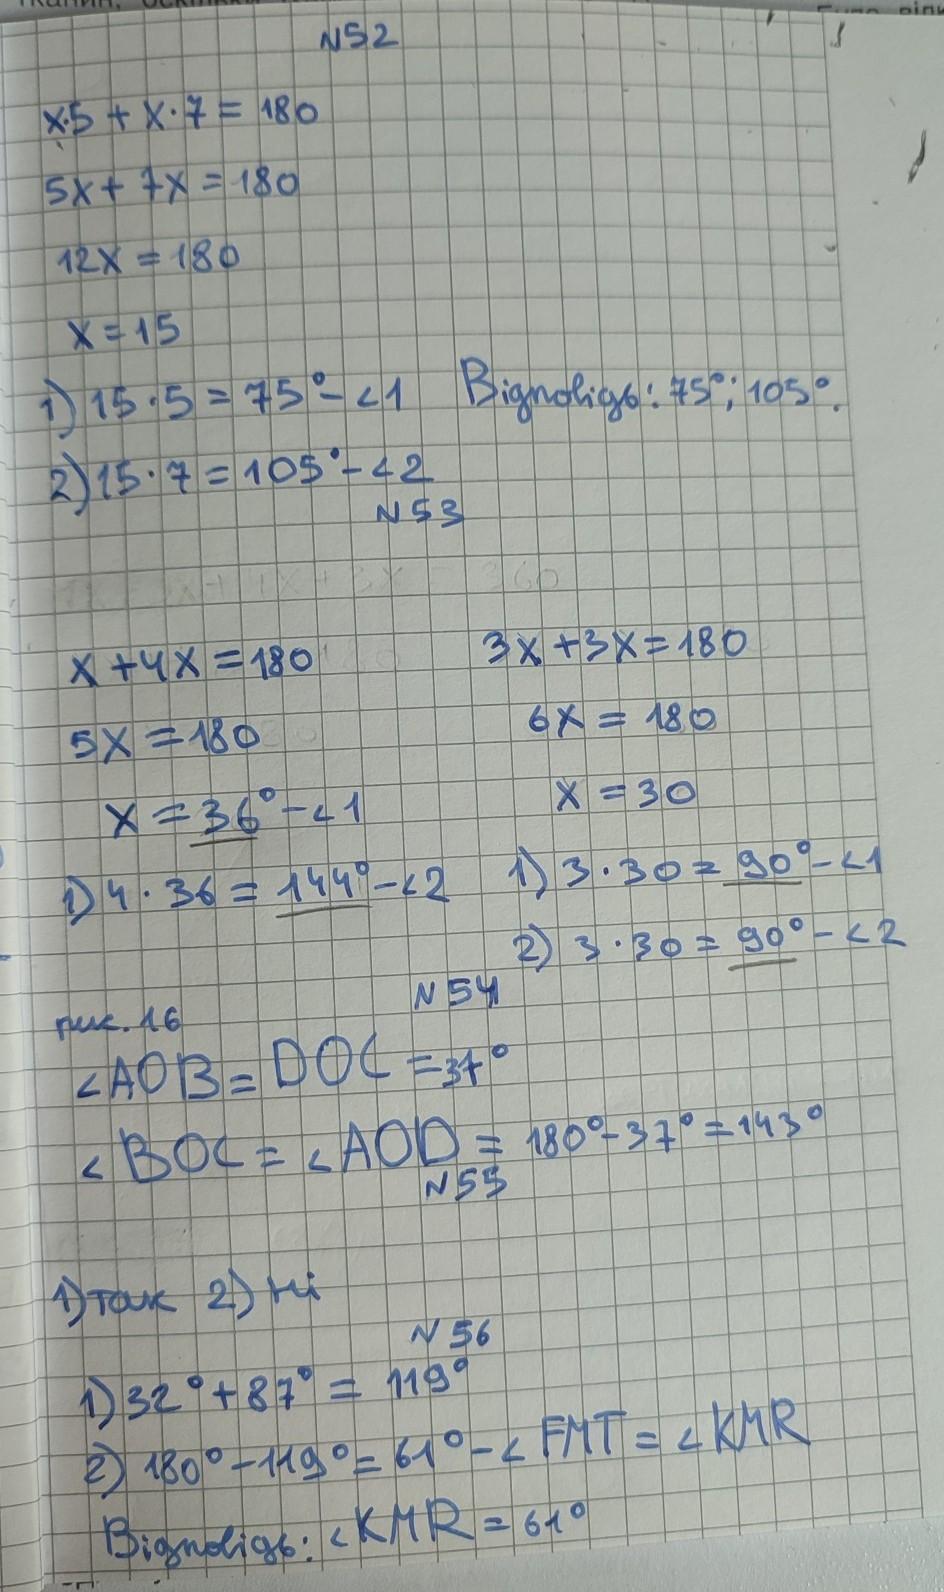 N52
x·5 + x·7 = 180
5x + 7x = 180
12x = 180
x = 15
1) 15·5 = 75° - <1 Відповідь: 75°; 105°.
2) 15·7 = 105° - <2
N53
x + 4x = 180 3x + 3x = 180
5x = 180 6x = 180
x = 36° - <1 x = 30
1) 4·36 = 144° - <2 1) 3·30 = 90° - <1
2) 3·30 = 90° - <2
N54
рис. 16
<AOB = DOC = 37°
<BOC = <AOD = 180° - 37° = 143°
N55
1) так 2) Ні
N56
1) 32° + 87° = 119°
2) 180° - 119° = 61° - <FMT = <KMR
Відповідь: <KMR = 61°